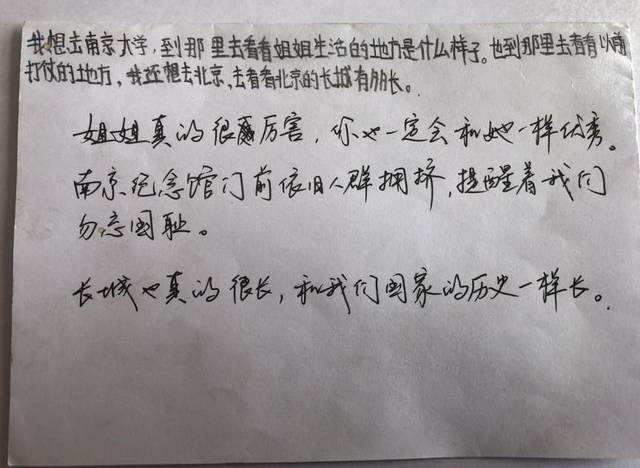 我想去南京大学，到那里去看看姐姐生活的地方是什么样子。也到那里去看看以前
打仗的地方，我还想去北京，去看看北京的长城有多长。
姐姐真的很厉害，你也一定会和她一样优秀。
南京纪念馆门前依旧人群拥挤，提醒着我们
勿忘国耻。
长城也真的很长，和我们国家的历史一样长。